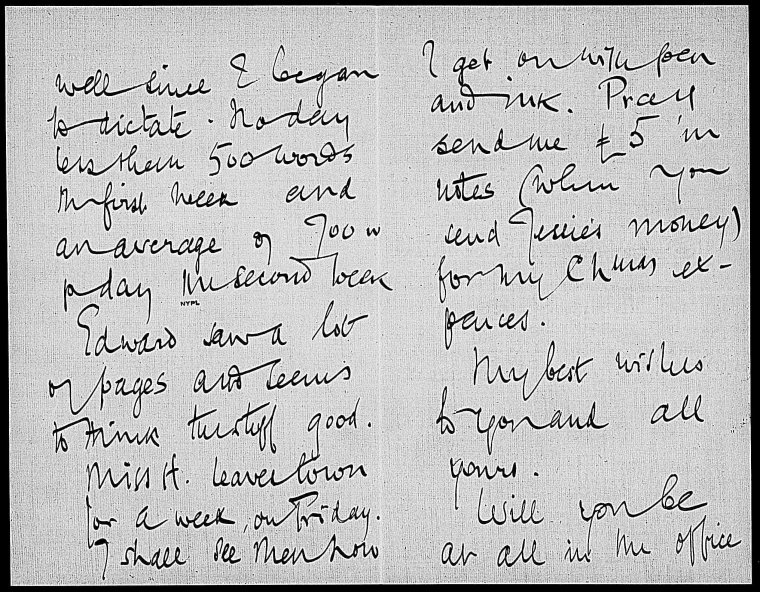 well since I began
to dictate. No day
less than 500 words
the first week and
an average of 700 w
p day the second week
NYPL
Edward saw a lot
of pages and seems
to think the stuff good.
Miss H. leaves town
for a week, on Friday.
I shall see then how
I get on with pen
and ink. Pray
send me £5 in
notes (when you
send Jessie's money)
for my Chmas ex-
pences.
My best wishes
to you and all
yours.
Will you be
at all in the office